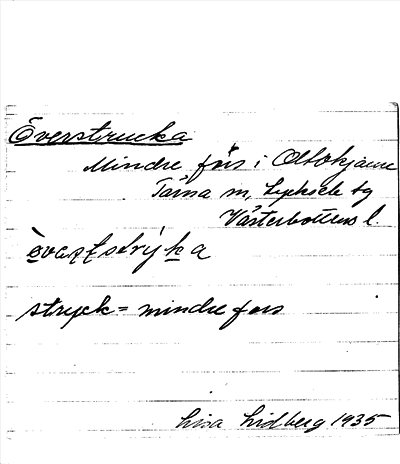 Överstrucka
Mindre fors i Altsån
Tärna sn, Lycksele tg
Västerbottens l.
strýka
stryck = mindre fors
Lisa Lidberg 1935